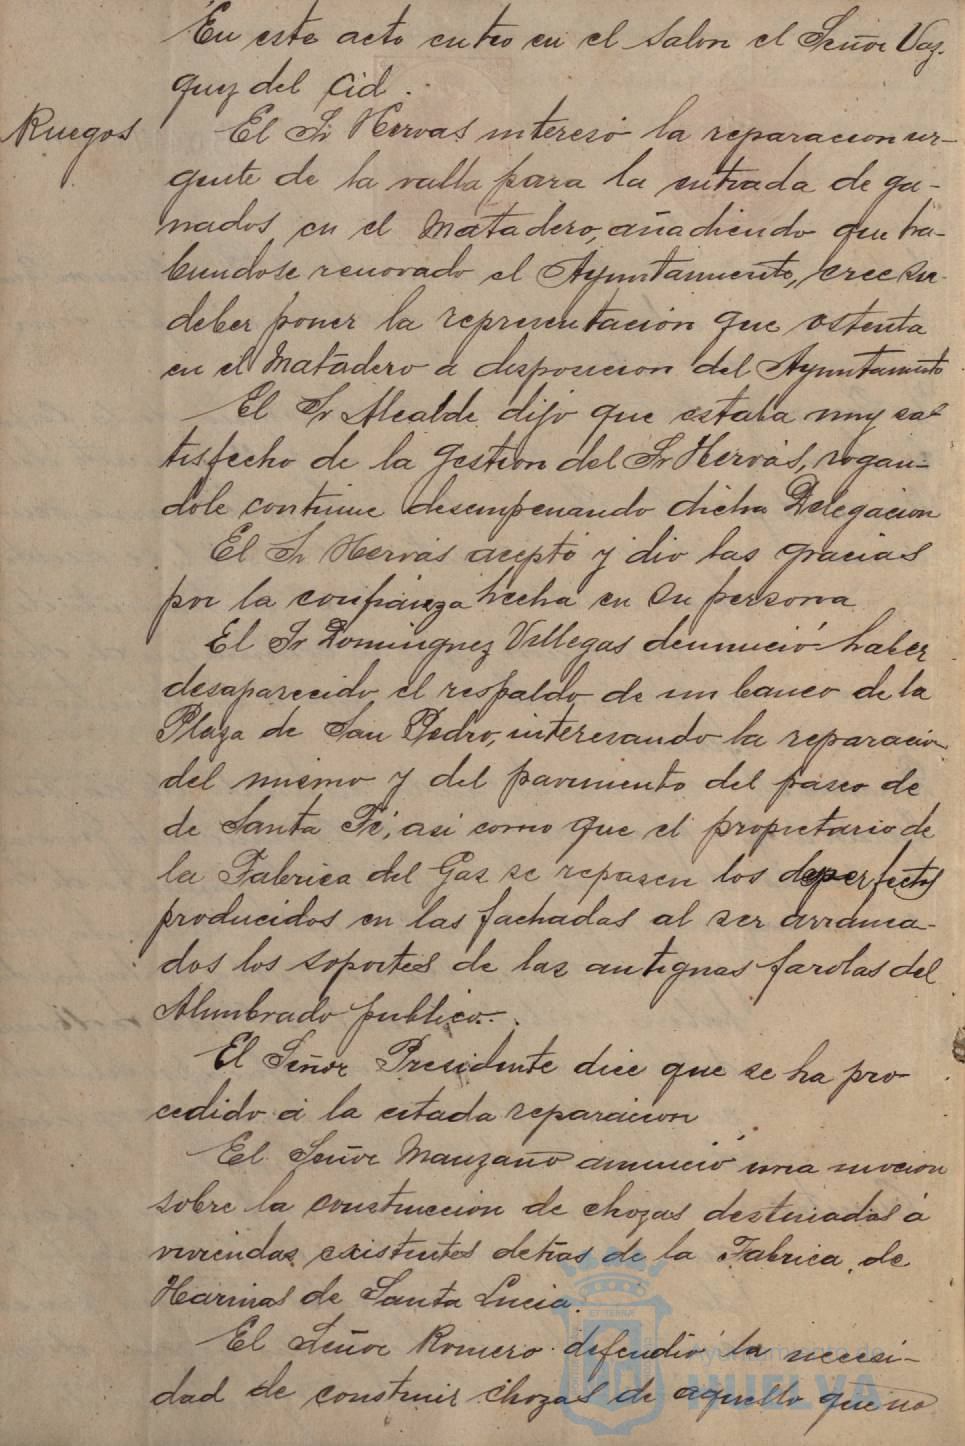 En este acto entro en el salon el Señor Vaz-
quez del Cid.
Ruegos
El Sr Hervas intereso la reparacion ur-
gente de la valla para la entrada de ga-
nados en el Matadero, añadiendo que ha-
biendose renovado el Ayuntamiento, cree su
deber poner la representacion que ostenta
en el Matadero a disposicion del Ayuntamiento
El Sr Alcalde dijo que estaba muy sa-
tisfecho de la gestion del Sr Hervás, rogan-
dole continue desempenando dicha Delegacion
El Sr Hervás aceptó y dio las gracias
por la confianza hecha en su persona
El Sr Dominguez Villegas denunció haber
desaparecido el respaldo de un banco de la
Plaza de San Pedro, interesando la reparacion
del mismo y del pavimento del paseo de
de Santa Fé, asi como que el propietario de
la Fabrica del Gas se reparen los desperfectos
producidos en las fachadas al ser arranca-
dos los soportes de las antiguas farolas del
Alumbrado publico.
El Señor Presidente dice que se ha pro
cedido a la citada reparacion
El Señor Manzano anunció una mocion
sobre la construccion de chozas destinadas á
viviendas existentes detras de la Fabrica de
Harinas de Santa Lucia.
El Señor Romero defendió la necesi-
dad de construir chozas de aquello que no
Ayuntamiento de
HUELVA